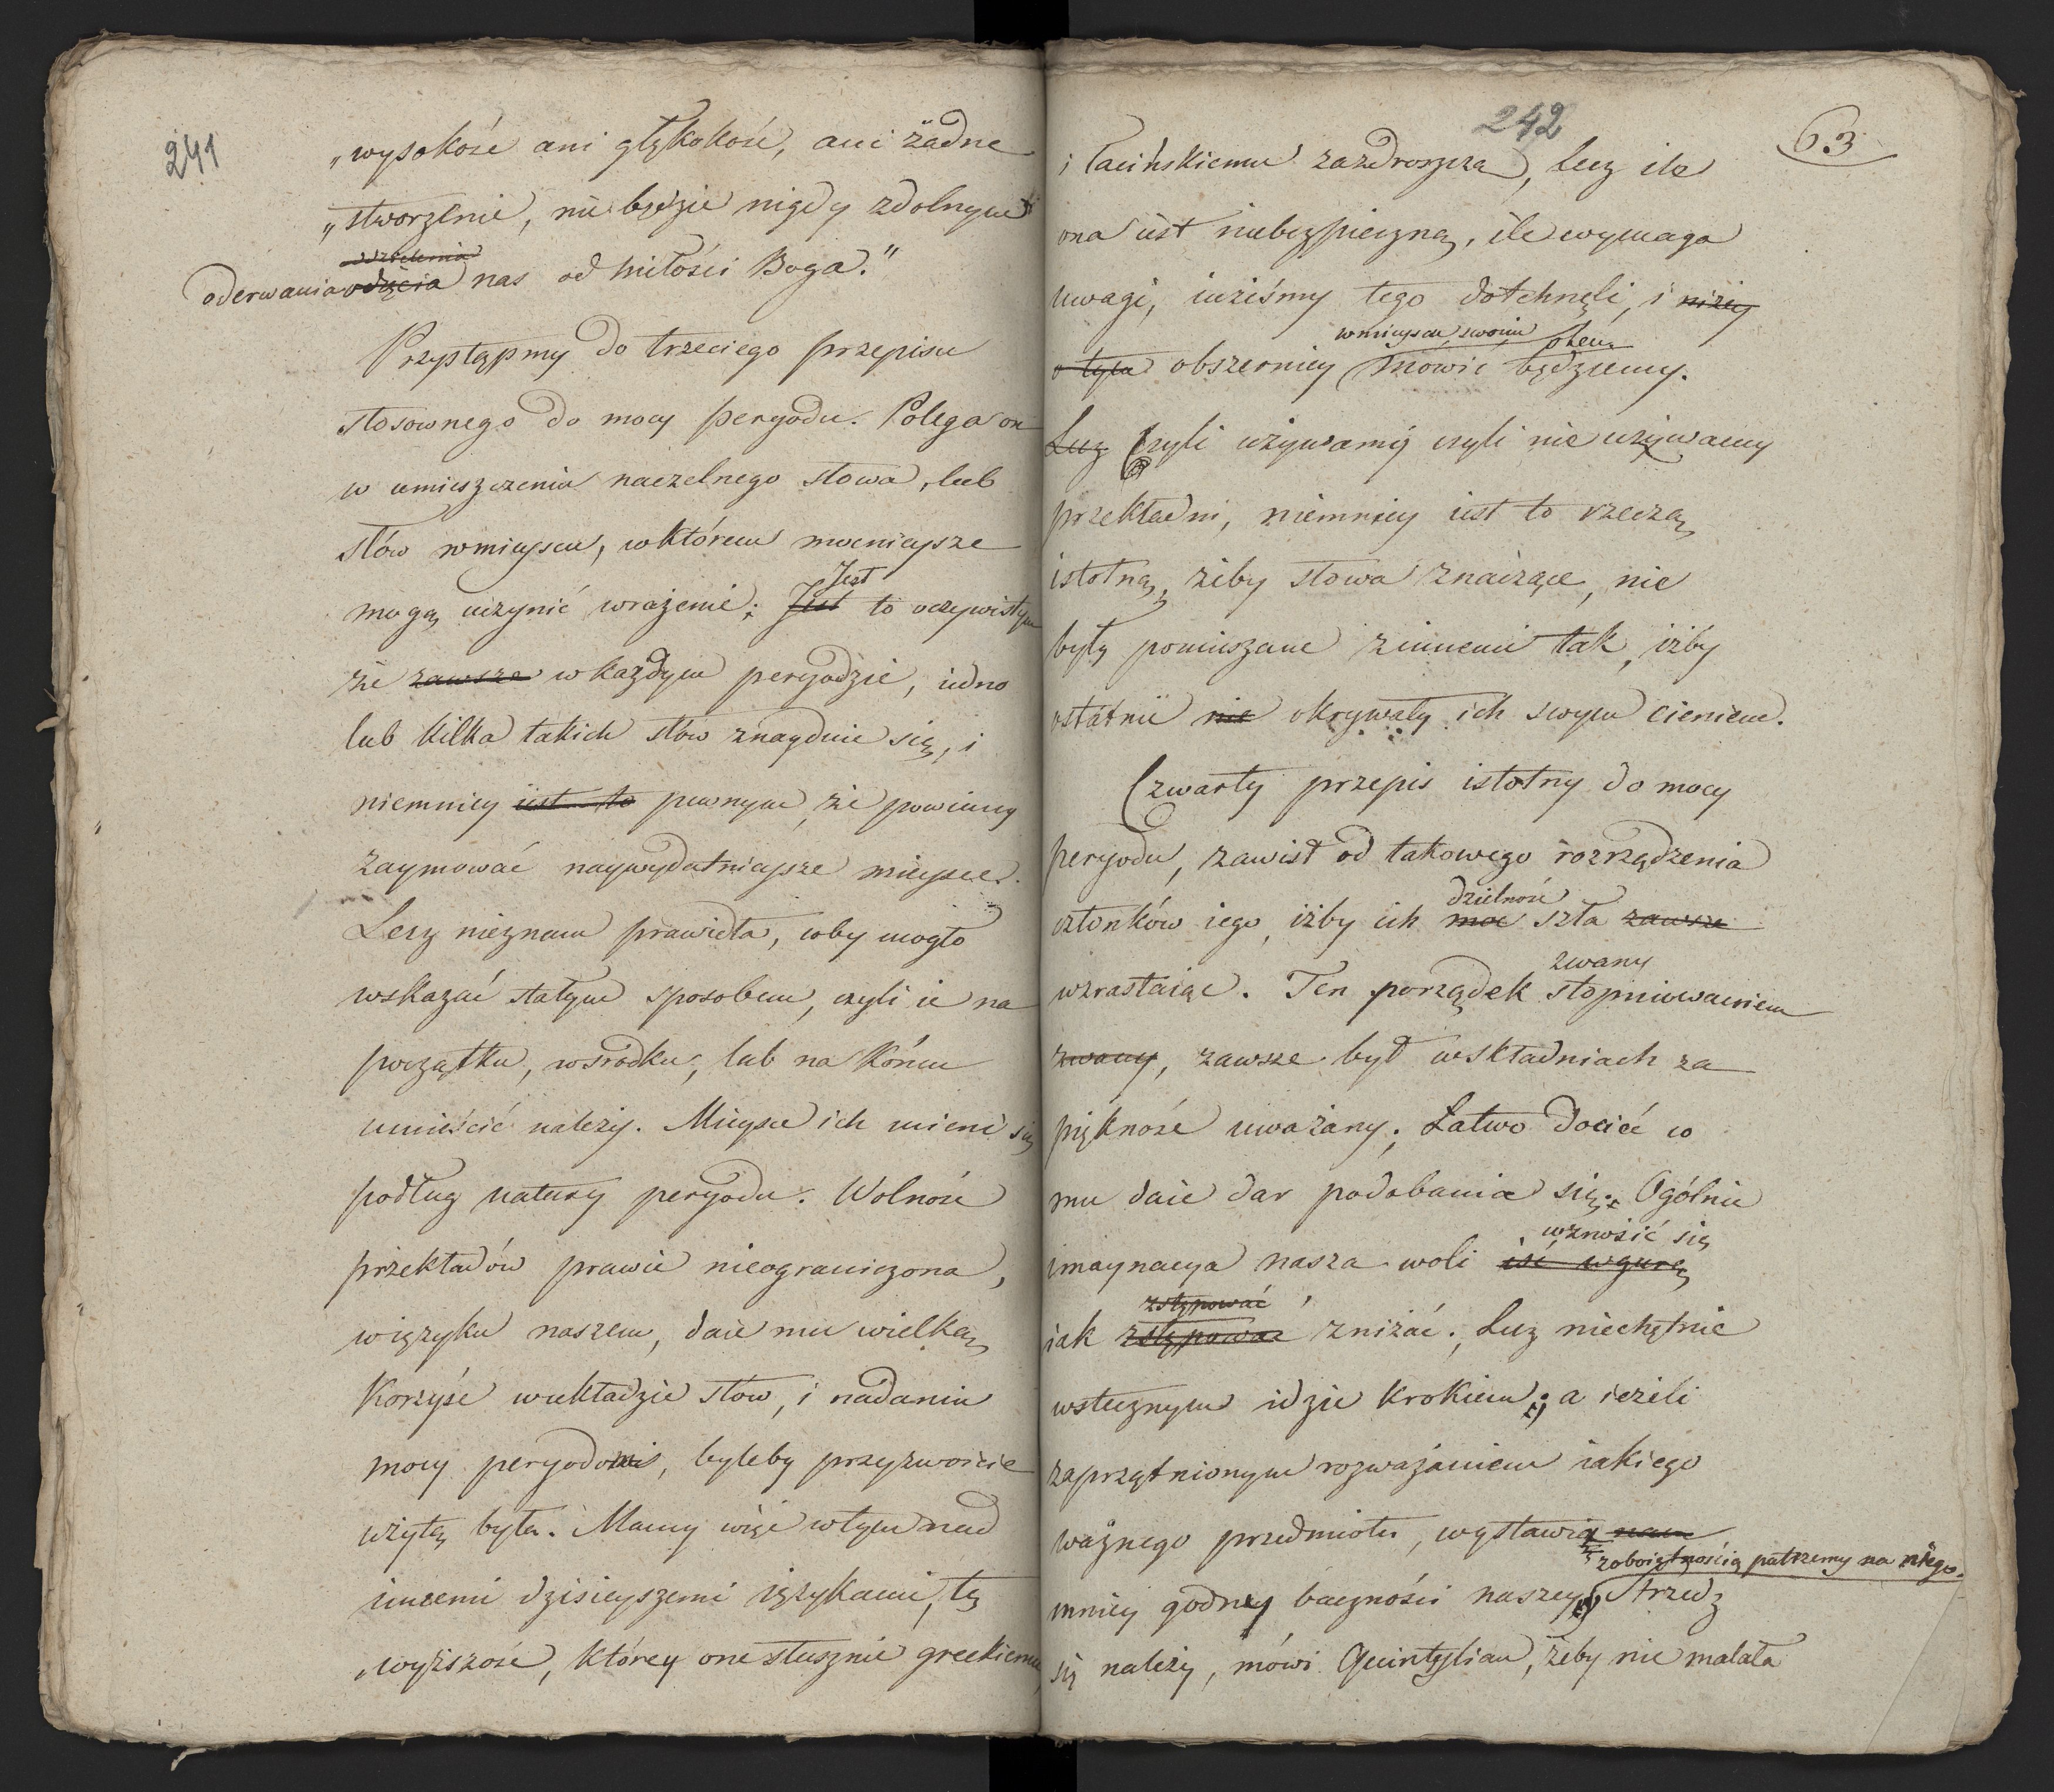 241
„wysokość ani głębokość, ani żadne
„stworzenie, nie będzie nigdy zdolnym
oddzielenia
oderwania odięcia nas od miłości Boga."
Przystąpmy do trzeciego przepisu
stosownego do mocy peryodu. Polega on
w umieszczeniu naczelnego słowa, lub
słów w mieyscu, w którem mocnieysze
Jest
mogą uczynić wrażenie; Jest to oczywistym
że zawsze w każdym peryodzie, iedno
lub kilka takich słów znaydzie się, i
niemniey iest to pewnym, że powinny
zaymować naywydatnieysze mieysce.
Lecz nieznam prawidła, coby mogło
wskazać stałym sposobem, czyli ie na
początku, w środku, lub na końcu
umieścić należy. Mieysce ich mieni się
podług natury peryodu. Wolność
przekładów prawie nieograniczona,
w ięzyku naszem, daie mu wielką
korzyść w układzie słów, i nadaniu
mocy peryodowi, byleby przyzwoicie
użytą była. Mamy więc w tym nad
innemi dzisieyszemi ięzykami, tę
wyższość, którey one słusznie greckiemu
242
63
i łacińskiemu zazdroszczą, lecz ile
ona iest niebezpieczną, ile wymaga
uwagi, iużeśmy tego dotchnęli, i niżey
w mieyscu swoim o tem
o tym obszerniey mówić będziemy.
Lecz Czyli używamy czyli nie używamy
przekładni, niemniey iest to rzeczą
istotną, żeby słowa znaczące, nie
były pomieszane z innemi tak, iżby
ostatnie nie okrywały ich swym cieniem.
Czwarty przepis istotny do mocy
peryodu, zawisł od takowego rozrządzenia
dzielność
członków iego, iżby ich moc szła zawsze
zwany
wzrastaiąc. Ten porządek stopniowaniem
zwany, zawsze był w składniach za
piękność uważany; Łatwo dociec co
mu daie dar podobania się; Ogólnie
wznosić się
imaynacya nasza woli iść w gurę
zstępować
iak zstępować zniżać; Lecz niechętnie
wstecznym idzie krokiem; a ieżeli
zaprzątnionym rozważaniem iakiego
ważnego przedmiotu, wystawią nam
z oboiętnością patrzemy na niego.
mniey godney baczności naszey Strzedz
się należy, mówi Quintylian, żeby nie malała